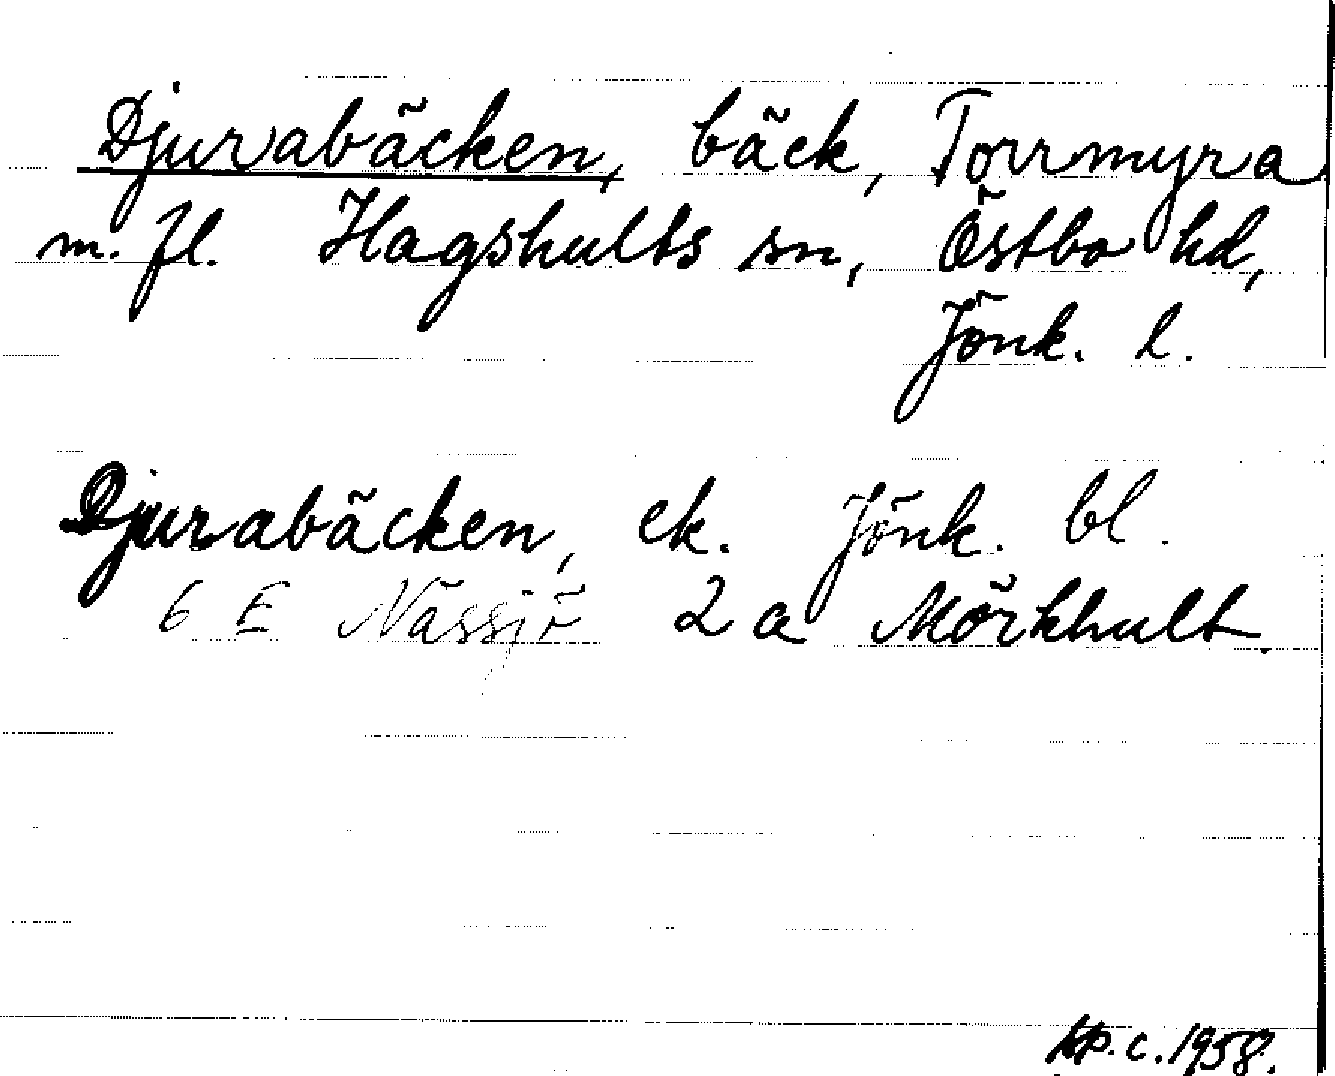 Djurabäcken, bäck, Torrmyra
m. fl. Hagshults sn, Östbo hd,
Jönk. l.
Djurabäcken, ek. Jönk. bl.
6 E Nässjö 2 a Mörkhult.
c. 1958.